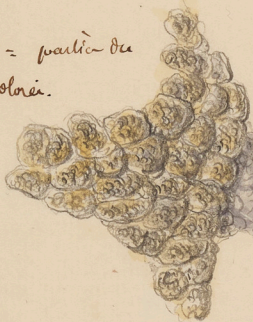 = partie du
olorei.